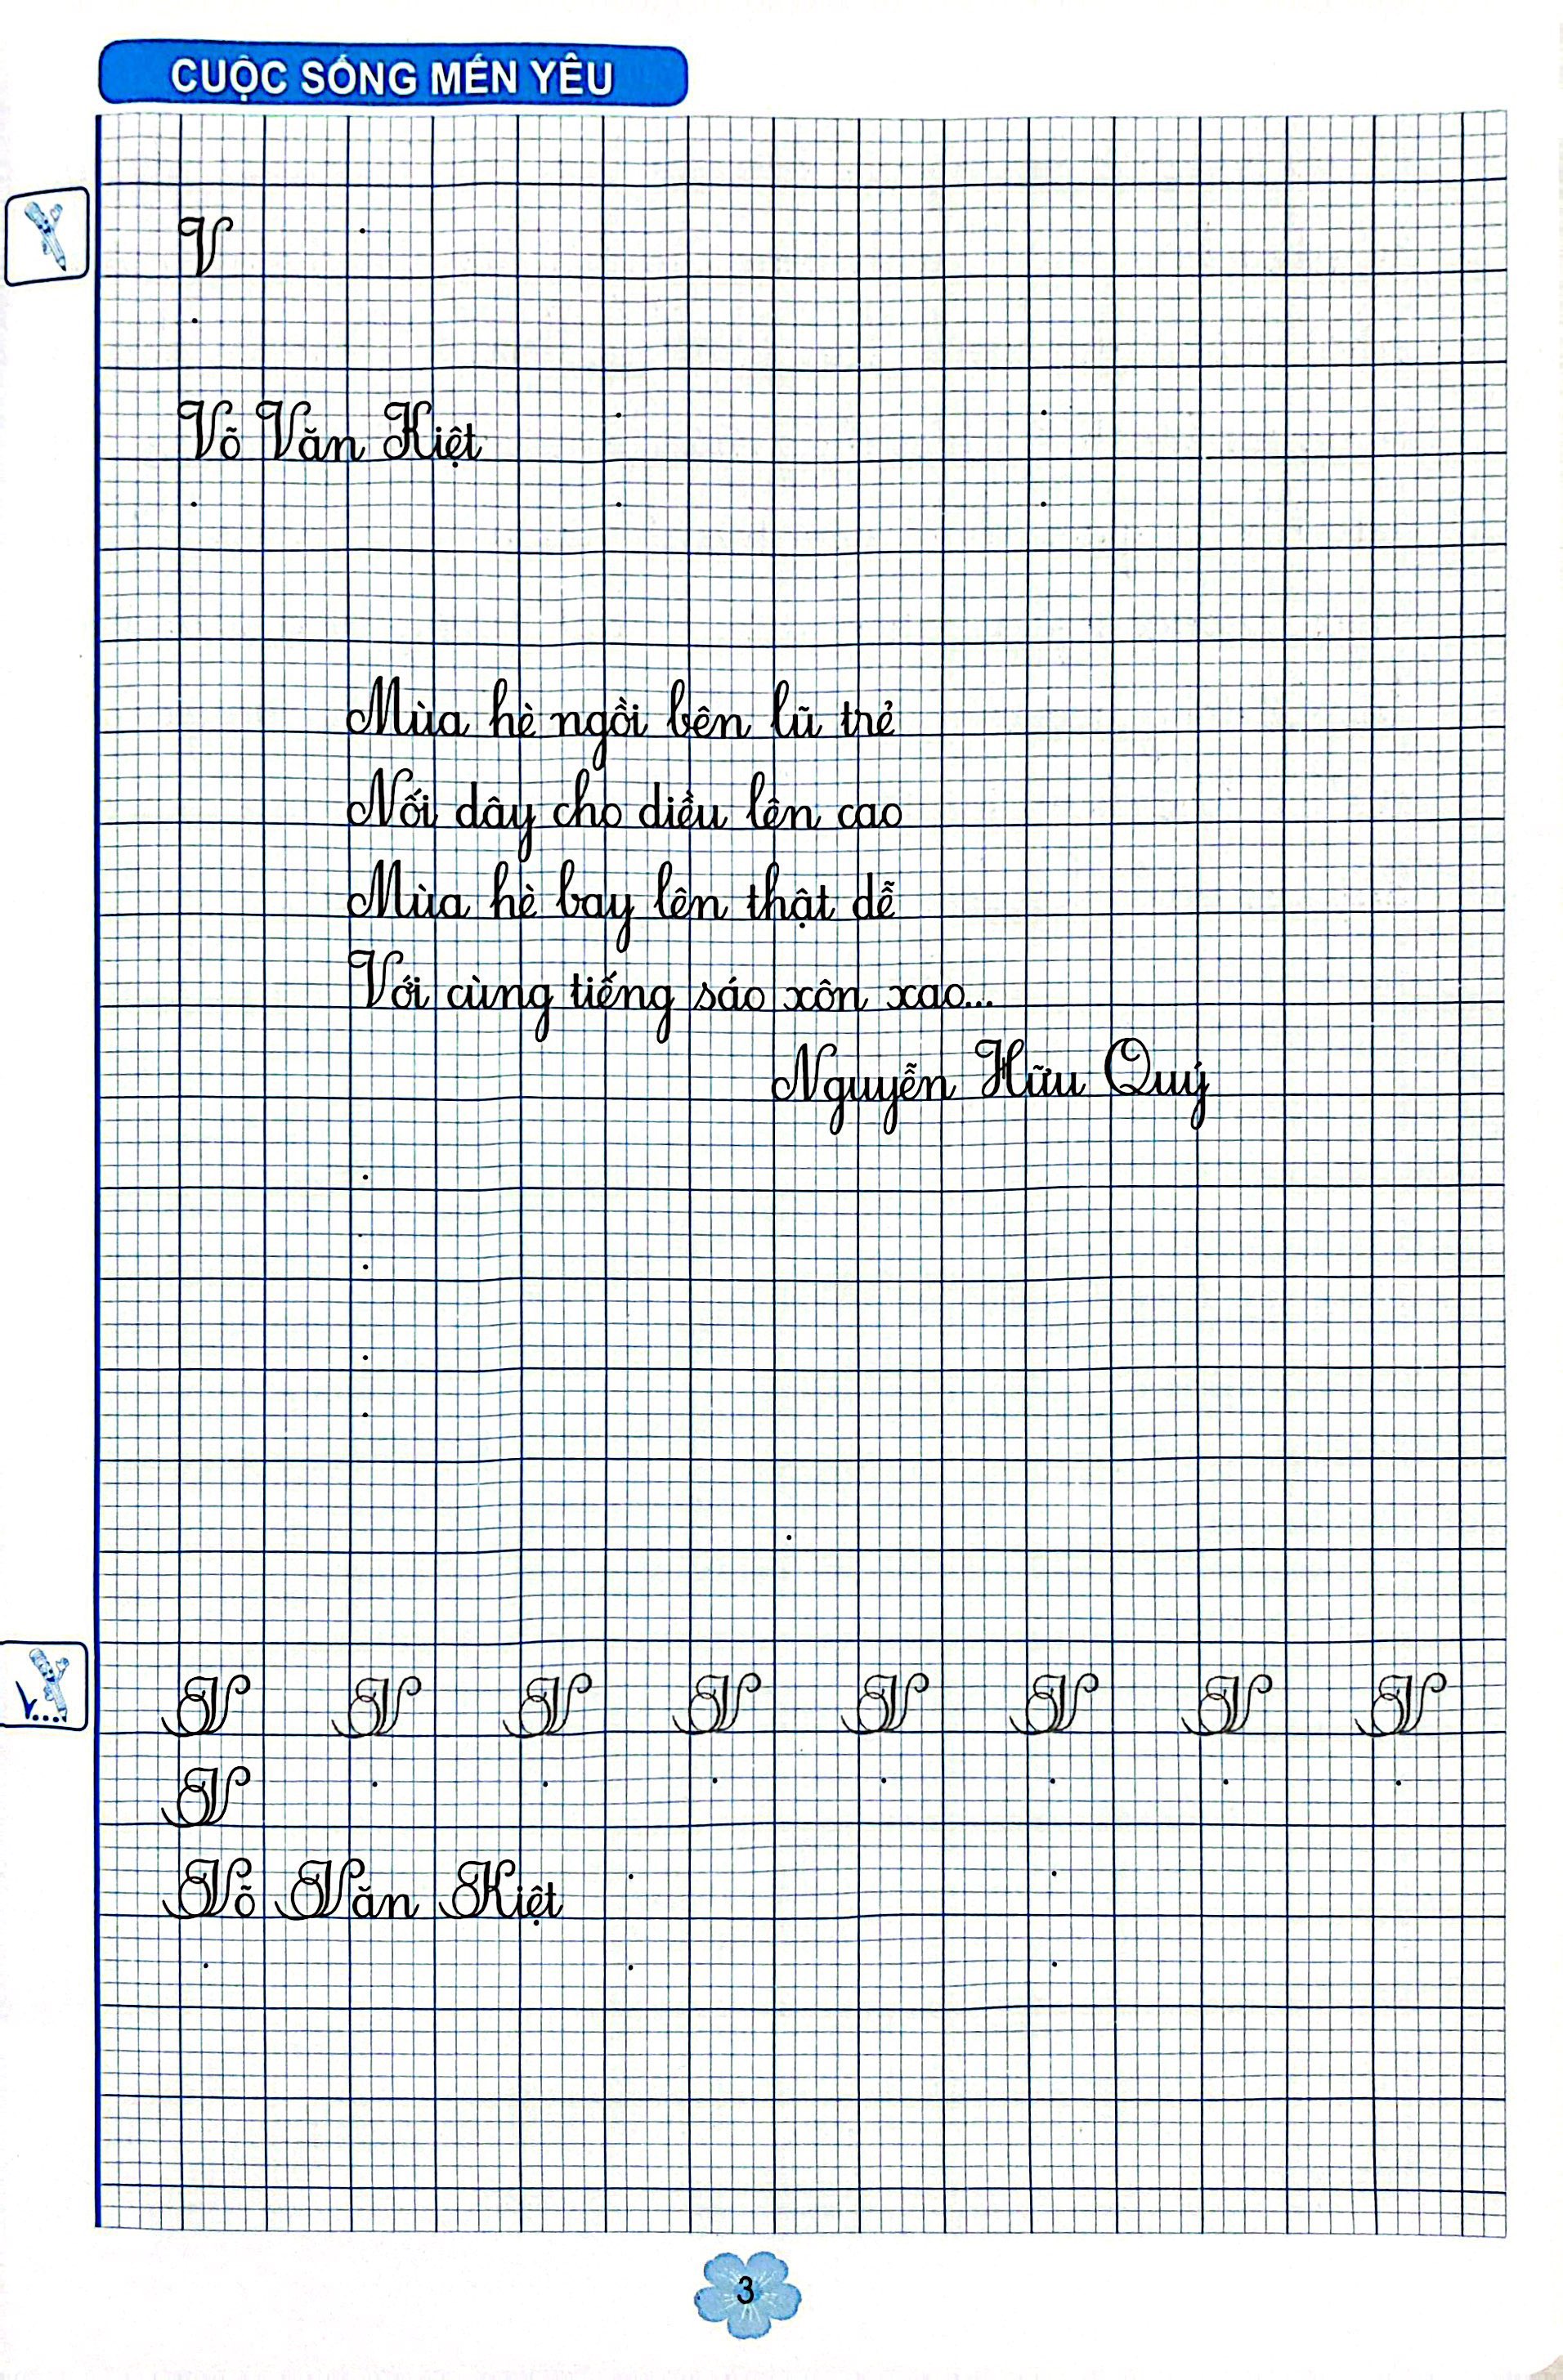 CUỘC SỐNG MẾN YÊU
V
Võ Văn Kiệt
Mùa hè ngồi bên lũ trẻ
Nối dây cho diều lên cao
Mùa hè bay lên thật dễ
Với cùng tiếng sáo xôn xao...
Nguyễn Hữu Quý
V V V V V V V V
V
Võ Văn Kiệt
3